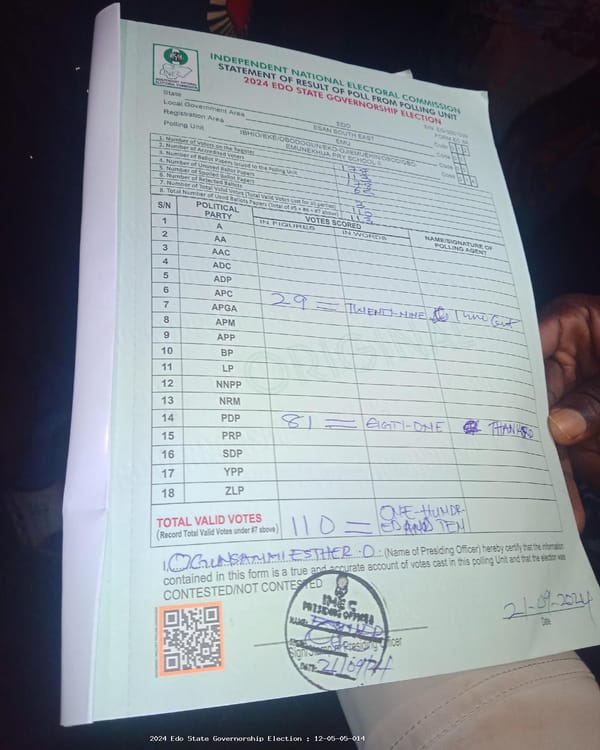 INDEPENDENT NATIONAL ELECTORAL COMMISSION
STATEMENT OF RESULT OF POLL FROM POLLING UNIT
2024 EDO STATE GOVERNORSHIP ELECTION
State EDO
Local Government Area ESAN SOUTH EAST Code
Registration Area Code
Polling Unit EMUNEKHUA PRY SCHOOL Code
1. Number of Voters on the Register
2. Number of Accredited Voters
3. Number of Ballot Papers Issued to the Polling Unit
4. Number of Unused Ballot Papers
5. Number of Spoiled Ballot Papers
6. Number of Rejected Ballots
7. Number of Total Valid Votes (Total Valid Votes cast for all parties) 110
8. Total Number of Used Ballots Papers (Total of #5 + #6 + #7 above)
S/N POLITICAL PARTY VOTES SCORED NAME/SIGNATURE OF POLLING AGENT
IN FIGURES IN WORDS
1 A
2 AA
3 AAC
4 ADC
5 ADP
6 APC 29 = TWENTY-NINE
7 APGA
8 APM
9 APP
10 BP
11 LP
12 NNPP
13 NRM
14 PDP 81 = EIGTI-ONE
15 PRP
16 SDP
17 YPP
18 ZLP
TOTAL VALID VOTES 110 = ONE-HUNDR-
(Record Total Valid Votes under #7 above) ED AND TEN
I, OGUNSANMI ESTHER .O. (Name of Presiding Officer) hereby certify that the information
contained in this form is a true and accurate account of votes cast in this polling Unit and that the election was
CONTESTED/NOT CONTESTED
INEC
PRESIDING OFFICER
NAME:
Presiding Officer
DATE: 21/09/24
21-09-2024
Date
2024 Edo State Governorship Election : 12-05-05-014